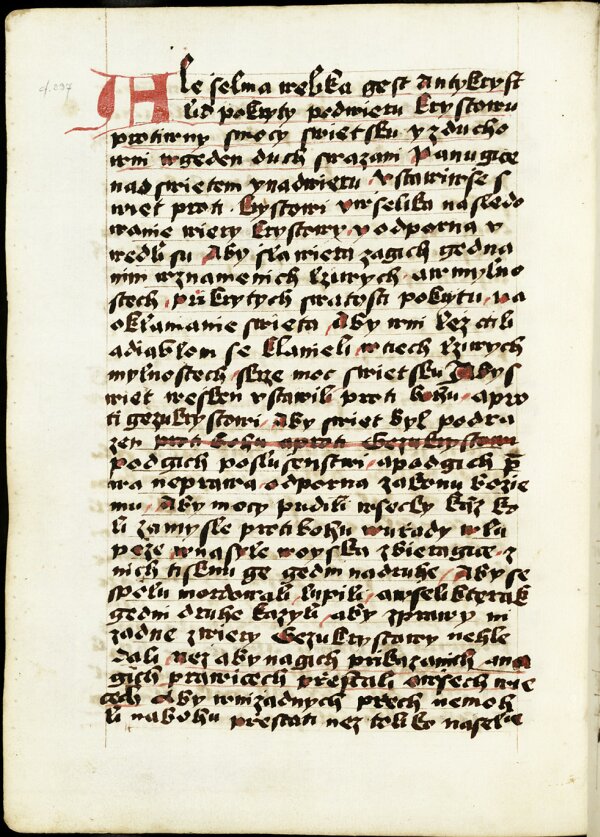 Ale selma welika gest Antykryst
lid pokryty podwieru krystowu
protiwny mocy swietsku y zducho
wni wgeden duch swazani Panugice
nad swietem ynadwieru vstawiwse s
wiet proti krystowi vwselika nasledo
wanie wiery krystowy y odporna v
wedli su Aby sławieru zagich gedna
nim wznamenich lziwych awmylno
stech přikrytych swatosti pokrytu na
okłamanie swieta Aby wni lez ctili
adiabłom se klanieli wtiech lziwych
mylnostech skrze moc swietsku Aby s
wiet wesken vstawili proti bohu apro
ti gezukrystowi Aby swiet byl podra
zen proti bohu aproti Gezukrystowi
podgich poslusenstwi apodgich p̄
wa neprawa odporna zakonu bozie
mu Aby mocy pudili wsecky kdyz ko
li zamysle protibohu wurady wlu
peze wnasyle woyska zbieragice z
nich tisknu ge gedni nadruhe Aby se
spolu mordowali lupili awselikterak
gedni druhe kazyli aby zprawy ni
zadne zwiery Gezukrystowy nehle
dali nez abynagich prikazanich ana
gich prawicech přestali owsech wie
cech Aby wnizadnych přech nemoh
li nabohu přestati nez toliko naselmie